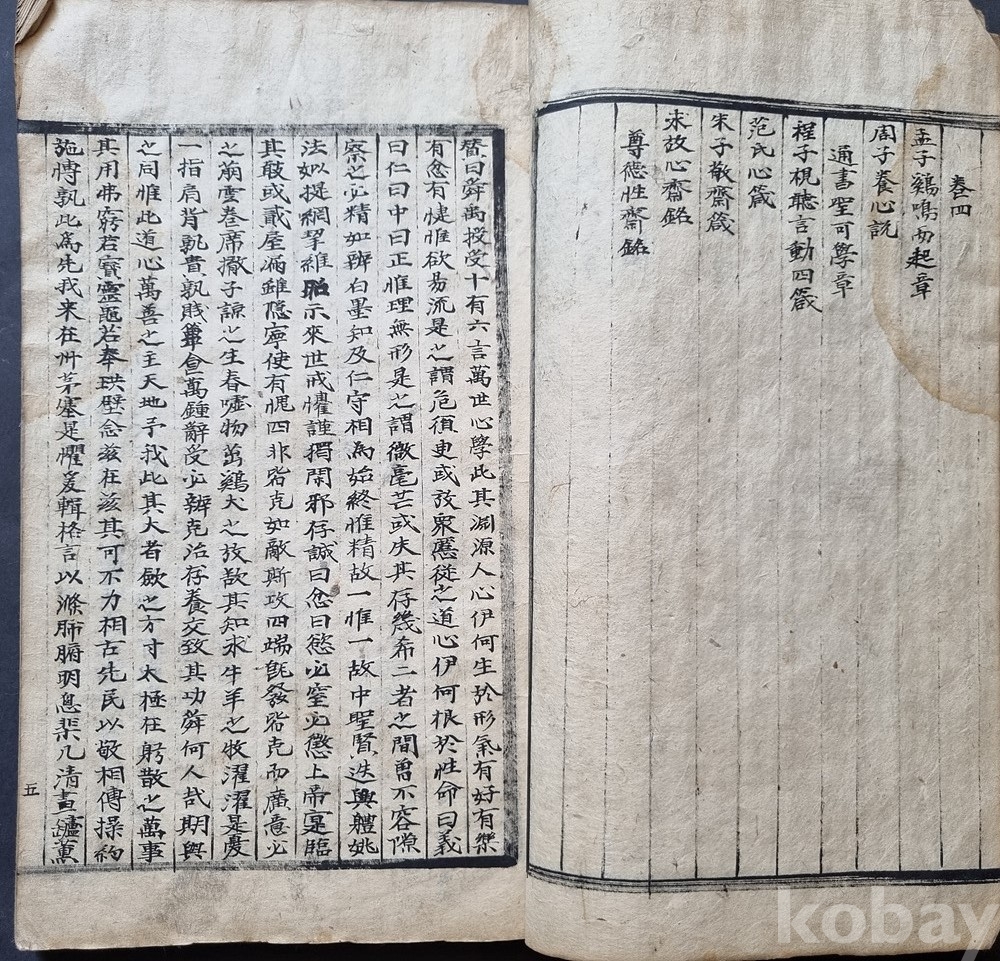 卷四
孟子鷄鳴而起章
周子養心說
通書聖可學章
程子視聽言動四箴
范氏心箴
朱子敬齋箴
求放心齋銘
尊德性齋銘
贊曰舜禹授受十有六言萬世心學此其淵源人心伊何生於形氣有好有樂
有忿有懥惟欲易流是之謂危須臾或放衆慝從之道心伊何根於性命曰義
曰仁曰中曰正惟理無形是之謂微毫芒或失其存幾希二者之間曾不容隙
察之必精如辨白墨知及仁守相為始終惟精故一惟一故中聖賢迭興軆姚
法姒提綱挈維昭示來世戒懼謹獨閑邪存誠曰忿曰慾必窒必懲上帝寔臨
其敢或貳屋漏雖隱寧使有愧四非皆克如敵斯攻四端旣發皆克而廣意必
之萌雲卷席撤子諒之生春噓物茁鷄犬之放欲其知求牛羊之牧濯濯是憂
一指肩背孰貴孰賤簞食萬鍾辭受必辨克治存養交致其功舜何人哉期與
之同惟此道心萬善之主天地予我此其大者斂之方寸太極在躬散之萬事
其用弗窮若寶靈龜若奉珙璧念玆在玆其可不力相古先民以敬相傳操約
施博孰此為先我来在州茅塞是懼爰輯格言以滌肺腑明窓棐几清晝鑪薰
五
kobay